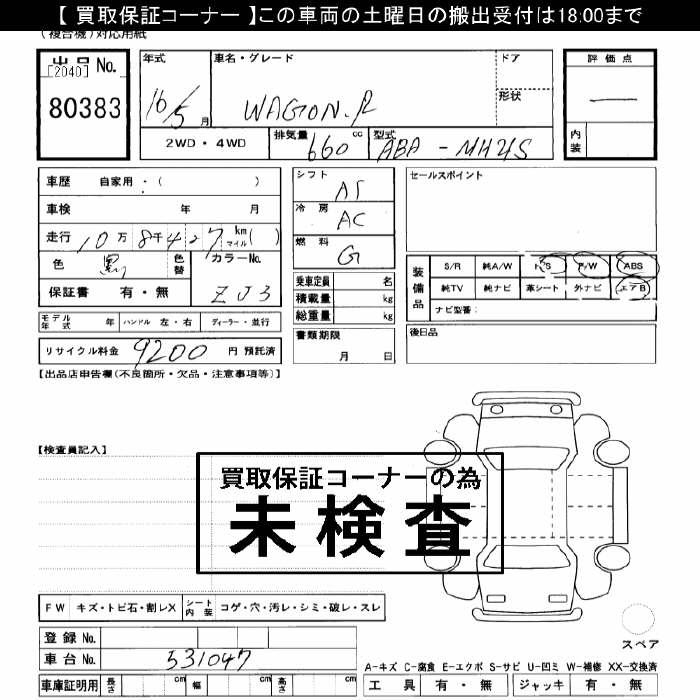 【 買取保証コーナー 】この車両の土曜日の搬出受付は18:00まで
(複合機)対応用紙
出品 No.
[2040]
80383
年式
16/5 月
車名・グレード
WAGON-R
ドア
形状
評価点
—
内装
2WD・4WD
排気量 660 cc
型式 ABA-MH21S
車歴 自家用・( )
車検 年 月
走行 10万 8千427 km マイル( )
色 黒 色替 カラーNo. ZJ3
保証書 有・無
シフト AT
冷房 AC
燃料 G
セールスポイント
装備品
S/R 純A/W P/S P/W ABS
純TV 純ナビ 革シート 外ナビ エアB
ナビ型番:
乗車定員 名
積載量 kg
総重量 kg
モデル年式 年 ハンドル 左・右 ディーラー・並行
リサイクル料金 9200 円 預託済
書類期限
月 日
後日品
【出品店申告欄(不良箇所・欠品・注意事項等)】
【検査員記入】
買取保証コーナーの為
未検査
FW キズ・トビ石・割レX シート内装 コゲ・穴・汚レ・シミ・破レ・スレ
登録 No.
車台 No. 531047
スペア
A-キズ C-腐食 E-エクボ S-サビ U-凹ミ W-補修 XX-交換済
車庫証明用 長さ cm 幅 cm 高さ cm
工具 有・無 ジャッキ 有・無